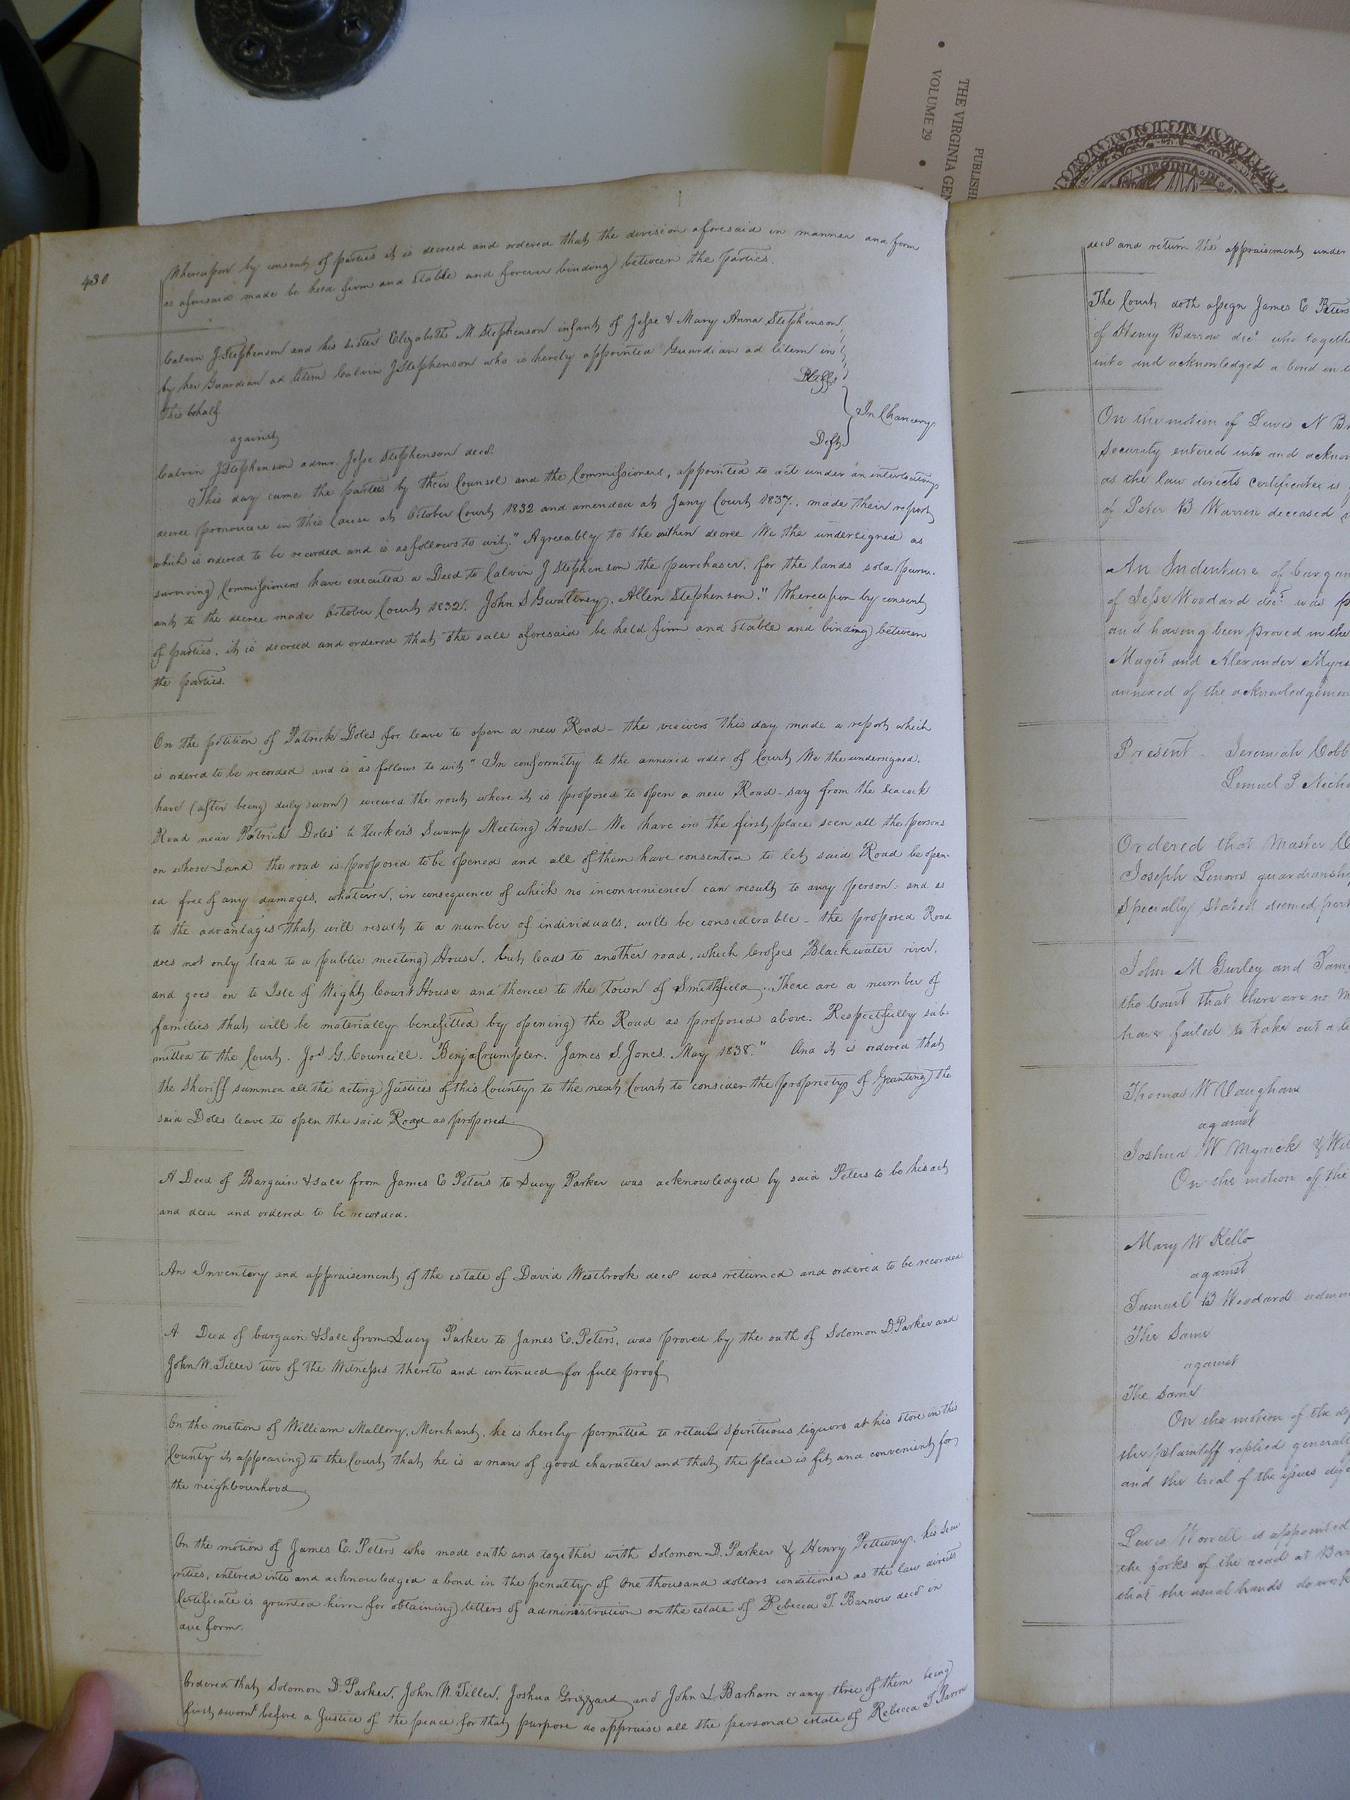 THE VIRGINIA GEN
VOLUME 29
PUBLISH
VIRGINIA
430
Whereupon by consent of parties it is decreed and ordered that the division aforesaid in manner and form
as aforesaid made be held firm and stable and forever binding between the parties.
Calvin J Stephenson and his sister Elizabeth M Stephenson infants of Jesse & Mary Anna Stephenson
by her Guardian ad litem Calvin J Stephenson who is hereby appointed Guardian ad litem in
this behalf
Pltffs
against
In Chancery
Calvin J Stephenson admr. Jesse Stephenson decd.
Deft
This day came the parties by their Counsel and the Commissioners, appointed to act under an interlocutory
decree pronounced in this Cause at October Court 1832 and amended at Jany Court 1837, made their report
which is ordered to be recorded and is as follows to wit, "Agreeably to the within decree We the undersigned as
surviving Commissioners have executed a Deed to Calvin J Stephenson the purchaser, for the lands sold pursu-
ant to the decree made October Court 1832. John S Gwaltney. Allen Stephenson." Whereupon by consent
of parties, it is decreed and ordered that the sale aforesaid be held firm and stable and binding between
the parties.
On the petition of Patrick Doles for leave to open a new Road - the viewers this day made a report which
is ordered to be recorded and is as follows to wit "In conformity to the annexed order of Court We the undersigned.
have (after being duly sworn) viewed the rout where it is proposed to open a new Road - say from the Seacock
Road near Patrick Doles' to Tucker's Swamp Meeting House - We have in the first place seen all the persons
on whose Land the road is proposed to be opened and all of them have consented to let said Road be open-
ed free of any damages, whatever, in consequence of which no inconvenience can result to any person - and as
to the advantages that will result to a number of individuals, will be considerable - the proposed Road
does not only lead to a public meeting House, but leads to another road, which Crosses Blackwater river,
and goes on to Isle of Wight Court House and thence to the town of Smithfield. There are a number of
families that will be materially benefitted by opening the Road as proposed above. Respectfully sub-
mitted to the Court. Jos G. Councill. Benja Crumpler. James S. Jones. May 1838." And it is ordered that
the Sheriff summon all the acting Justices of this County to the next Court to consider the propriety of Granting the
said Doles leave to open the said Road as proposed.
A Deed of Bargain & sale from James C Peters to Lucy Parker was acknowledged by said Peters to be his act
and deed and ordered to be recorded.
An Inventory and appraisement of the estate of David Westbrook decd was returned and ordered to be recorded
A Deed of bargain & Sale from Lucy Parker to James C. Peters, was proved by the oath of Solomon D. Parker and
John W. Tiller two of the Witnesses thereto and continued for full proof
On the motion of William Mallory, Merchant, he is hereby permitted to retail spirituous liquors at his store in this
County it appearing to the Court that he is a man of good character and that the place is fit and convenient for
the neighbourhood
On the motion of James C. Peters who made oath and together with Solomon D. Parker & Henry Pettway, his secu
rities, entered into and acknowledged a bond in the penalty of One thousand dollars conditioned as the law directs
Certificate is granted him for obtaining letters of administration on the estate of Rebecca T. Barrow decd in
due form.
Ordered that Solomon D. Parker, John W. Tiller, Joshua Grizzard and John L Barham or any three of them being
first sworn before a Justice of the peace for that purpose do appraise all the personal estate of Rebecca T. Barrow
decd and return the appraisement under
The Court doth assign James C Peters
of Henry Barrow decd who togethe
into and acknowledged a bond in t
On the motion of Lewis N B
Security entered into and acknow
as the law directs certificate is
of Peter B Warren deceased
An Indenture of bargain
of Jesse Woodard decd was p
and having been proved in the
Maget and Alexander Myric
annexed of the acknowledgemen
Present Jeremiah Cobb
Lemuel P Nicho
Ordered that Master C
Joseph Lenows guardianship
specially stated deemed pert
John M Gurley and Samu
the Court that there are no m
have failed to take out a l
Thomas W Vaughan
against
Joshua W Myrick & Wil
On the motion of the
Mary W Kello
against
Samuel B Woodard admin
The Same
against
The Same
On the motion of the de
the plaintiff replied generall
and the trial of the issues def
Lewis Worrell is appointed
the forks of the road at Bar
that the usual hands do work